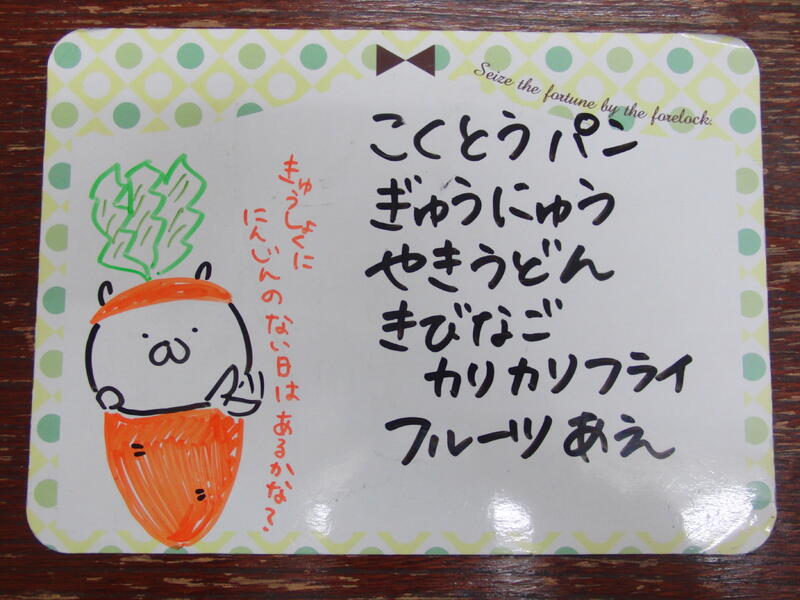 Seize the fortune by the forelock.
こくとうパン
ぎゅうにゅう
やきうどん
きびなご
カリカリフライ
フルーツあえ
きゅうしょくに
にんじんのない日はあるかな?